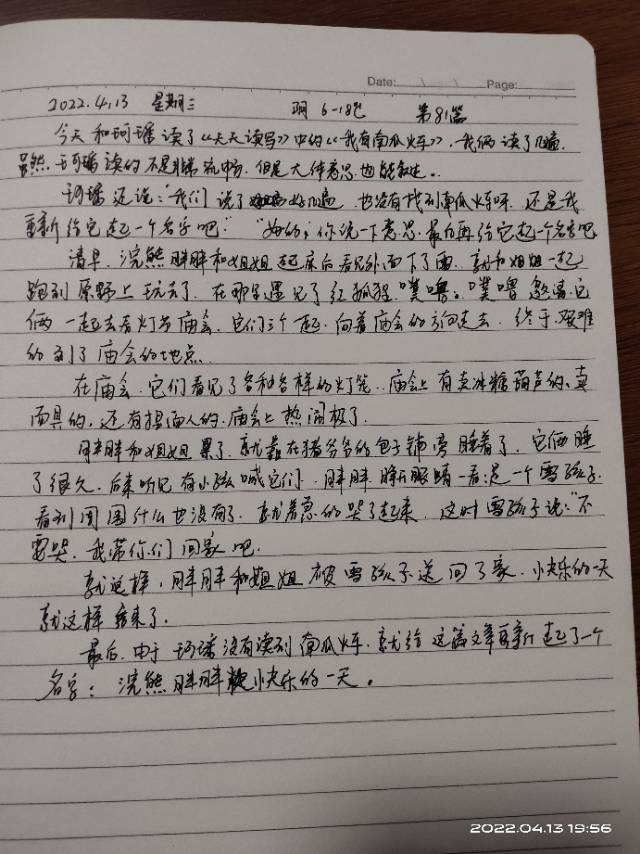 Date: Page:
2022.4.13 星期三 阴 6-18℃ 第81篇
今天和珂璠读了《天天读写》中的《我有南瓜火车》,我俩读了几遍,
虽然珂璠读的不是非常流畅,但是大体意思也能知道。
珂璠还说:"我们说了好几遍也没有找到南瓜火车呀,还是我
重新给它起一个名字吧." "好的;你说一下意思.最后再给它起一个名字吧
清早,浣熊胖胖和姐姐起床后看见外面下了雪,就和姐姐一起
跑到原野上玩去了.在那里遇见了红狐狸.噗噜。噗噜邀请它
俩一起去看灯与庙会.它们三个一起.向着庙会的方向走去.终于,艰难
的到了庙会的地点.
在庙会.它们看见了各种各样的灯笼.庙会上有卖冰糖葫芦的、卖
面具的,还有捏面人的.庙会上热闹极了.
胖胖和姐姐累了.就靠在猪爷爷的包子铺旁睡着了.它俩睡
了很久.后来听见有小孩喊它们.胖胖睁开眼睛一看:是一个雪孩子.
看到周围什么也没有了.就着急的哭了起来.这时雪孩子说:"不
要哭.我带你们回家吧.
就这样,胖胖和姐姐被雪孩子送回了家.快乐的一天
就这样结束了.
最后.由于珂璠没有读到南瓜火车.就给这篇文章重新起了一个
名字:浣熊胖胖快乐的一天。
2022.04.13 19:56